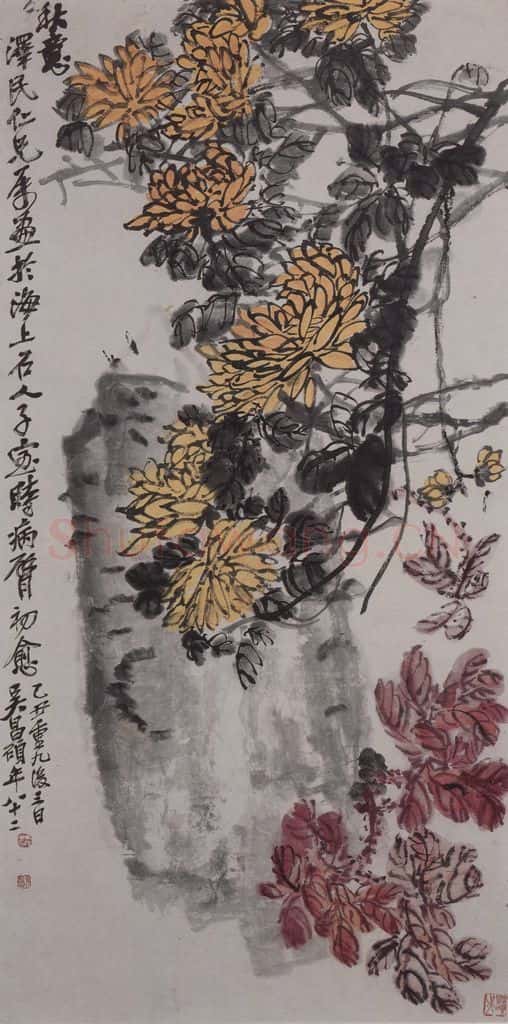 秋意
澤民仁兄屬畫於海上石人子室時病臂初愈
乙丑重九後三日
吳昌碩年八十二